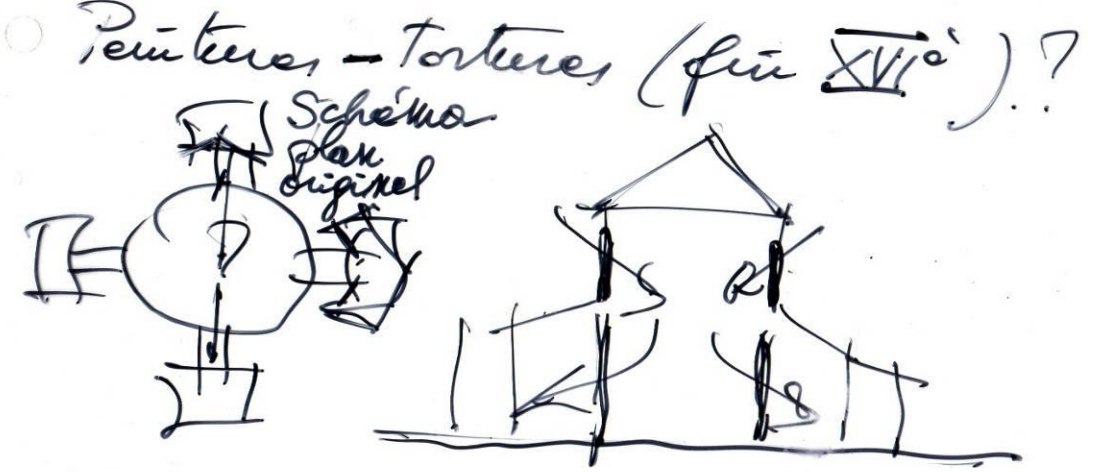 Peintures - Tortures (fin XVIè).?
Schéma
plan
originel
?